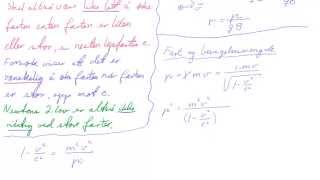 Skal alltid være like lett å øke
farten enten farten er liten
eller stor, av nesten lysfarten c.
Formelen viser att det er
vanskelig å øke farten når farten
er stor, opp mot c.
Newtons 2. lov er altså ikke
riktig ved store farter.
1 - v²/c² = m²v²/p²
Fart og bevegelsesmengde
p = γmv = 1·mv/√(1 - v²/c²)
p² = m²v²/(1 - v²/c²)